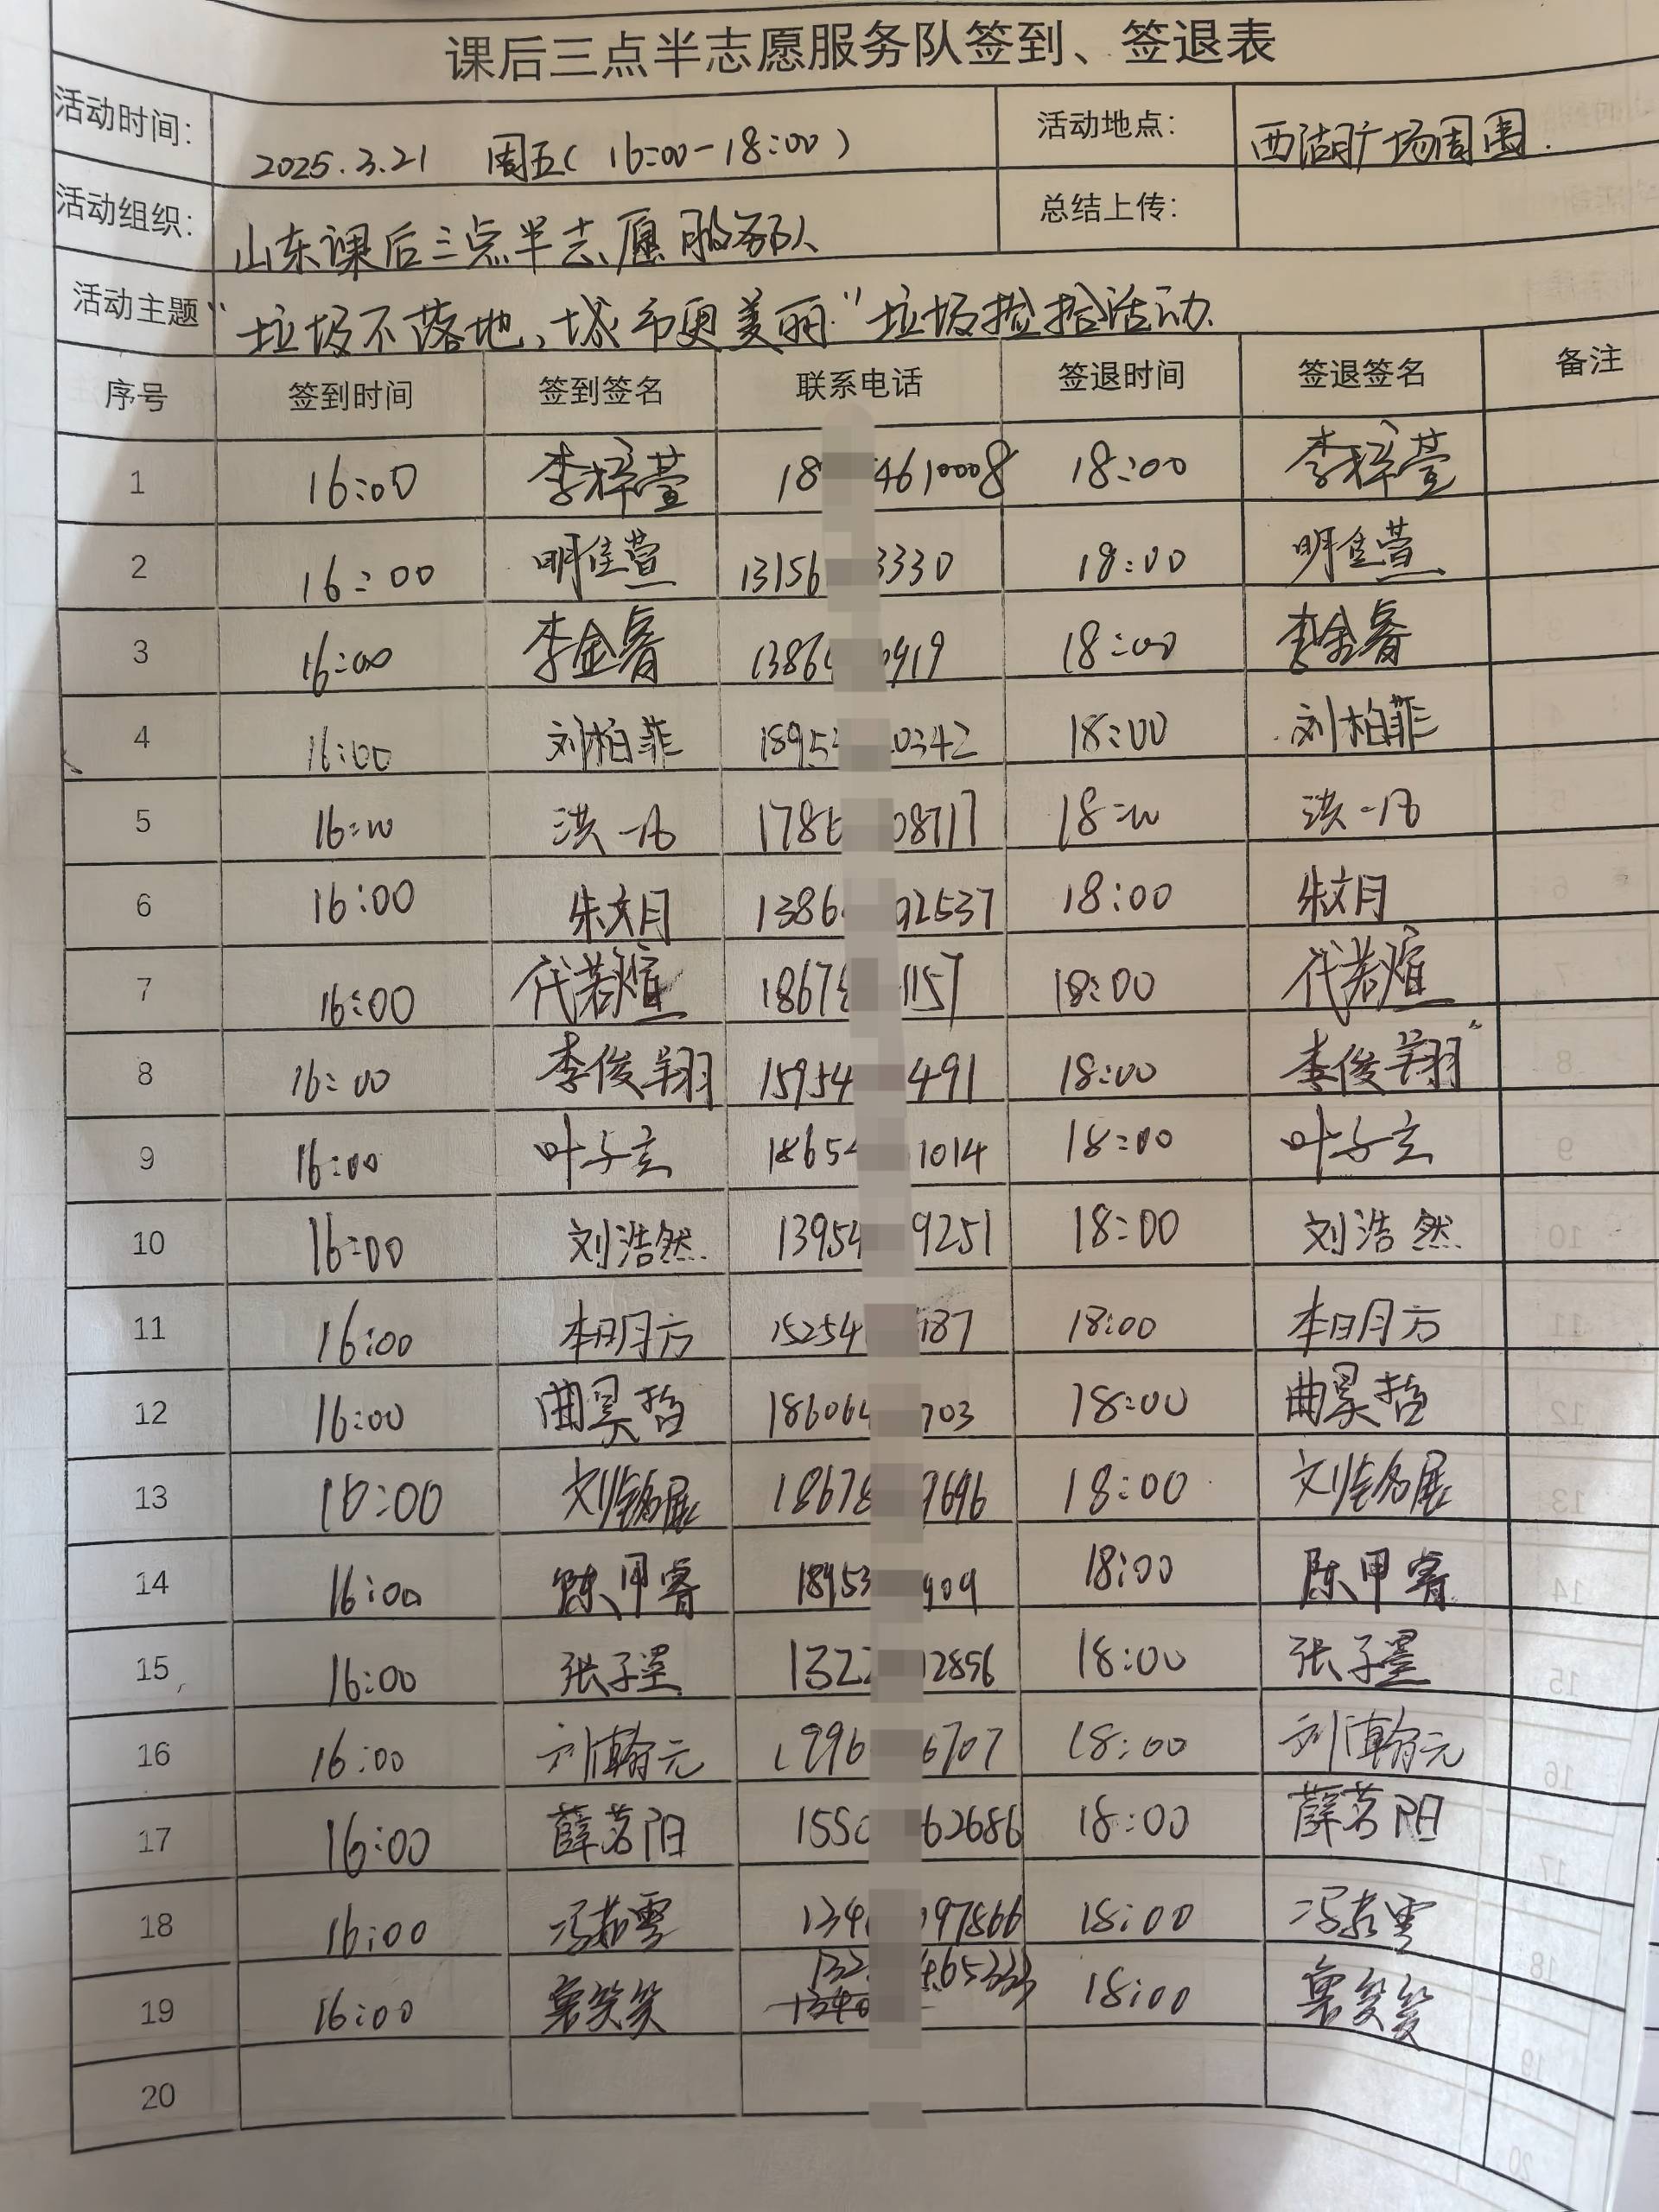 课后三点半志愿服务队签到、签退表
活动时间: 2025.3.21 周五(16:00-18:00) 活动地点: 西湖广场周围.
活动组织: 山东课后三点半志愿服务队 总结上传:
活动主题 "垃圾不落地、城市更美丽"垃圾捡拾活动.
序号 签到时间 签到签名 联系电话 签退时间 签退签名 备注
1 16:00 李梓萱 18 4610008 18:00 李梓萱
2 16:00 明佳萱 13156 3330 18:00 明佳萱
3 16:00 李金睿 1386 919 18:00 李金睿
4 16:00 刘柏菲 1895 0342 18:00 刘柏菲
5 16:00 洪一 178 08717 18:00 洪一
6 16:00 朱文月 1386 92537 18:00 朱文月
7 16:00 代若煊 1867 1157 18:00 代若煊
8 16:00 李俊翔 15954 491 18:00 李俊翔
9 16:00 叶子玄 1865 1014 18:00 叶子玄
10 16:00 刘浩然 13954 9251 18:00 刘浩然
11 16:00 本明方 15254 187 18:00 本明方
12 16:00 曲昊哲 18606 703 18:00 曲昊哲
13 16:00 展 18678 9696 18:00 展
14 16:00 陈甲睿 18953 909 18:00 陈甲睿
15 16:00 张子墨 132 2856 18:00 张子墨
16 16:00 刘瀚元 1996 6707 18:00 刘瀚元
17 16:00 薛茗阳 155 62686 18:00 薛茗阳
18 16:00 冯若雯 134 97866 18:00 冯若雯
19 16:00 笑笑 132 65333 18:00 笑笑
20